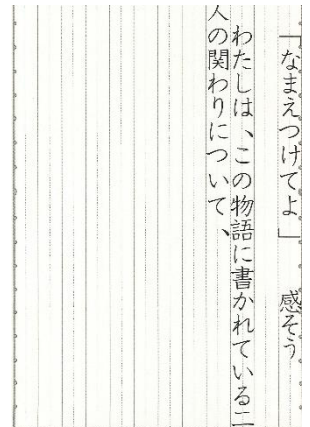 「なまえつけてよ」　感そう
わたしは、この物語に書かれている二
人の関わりについて、